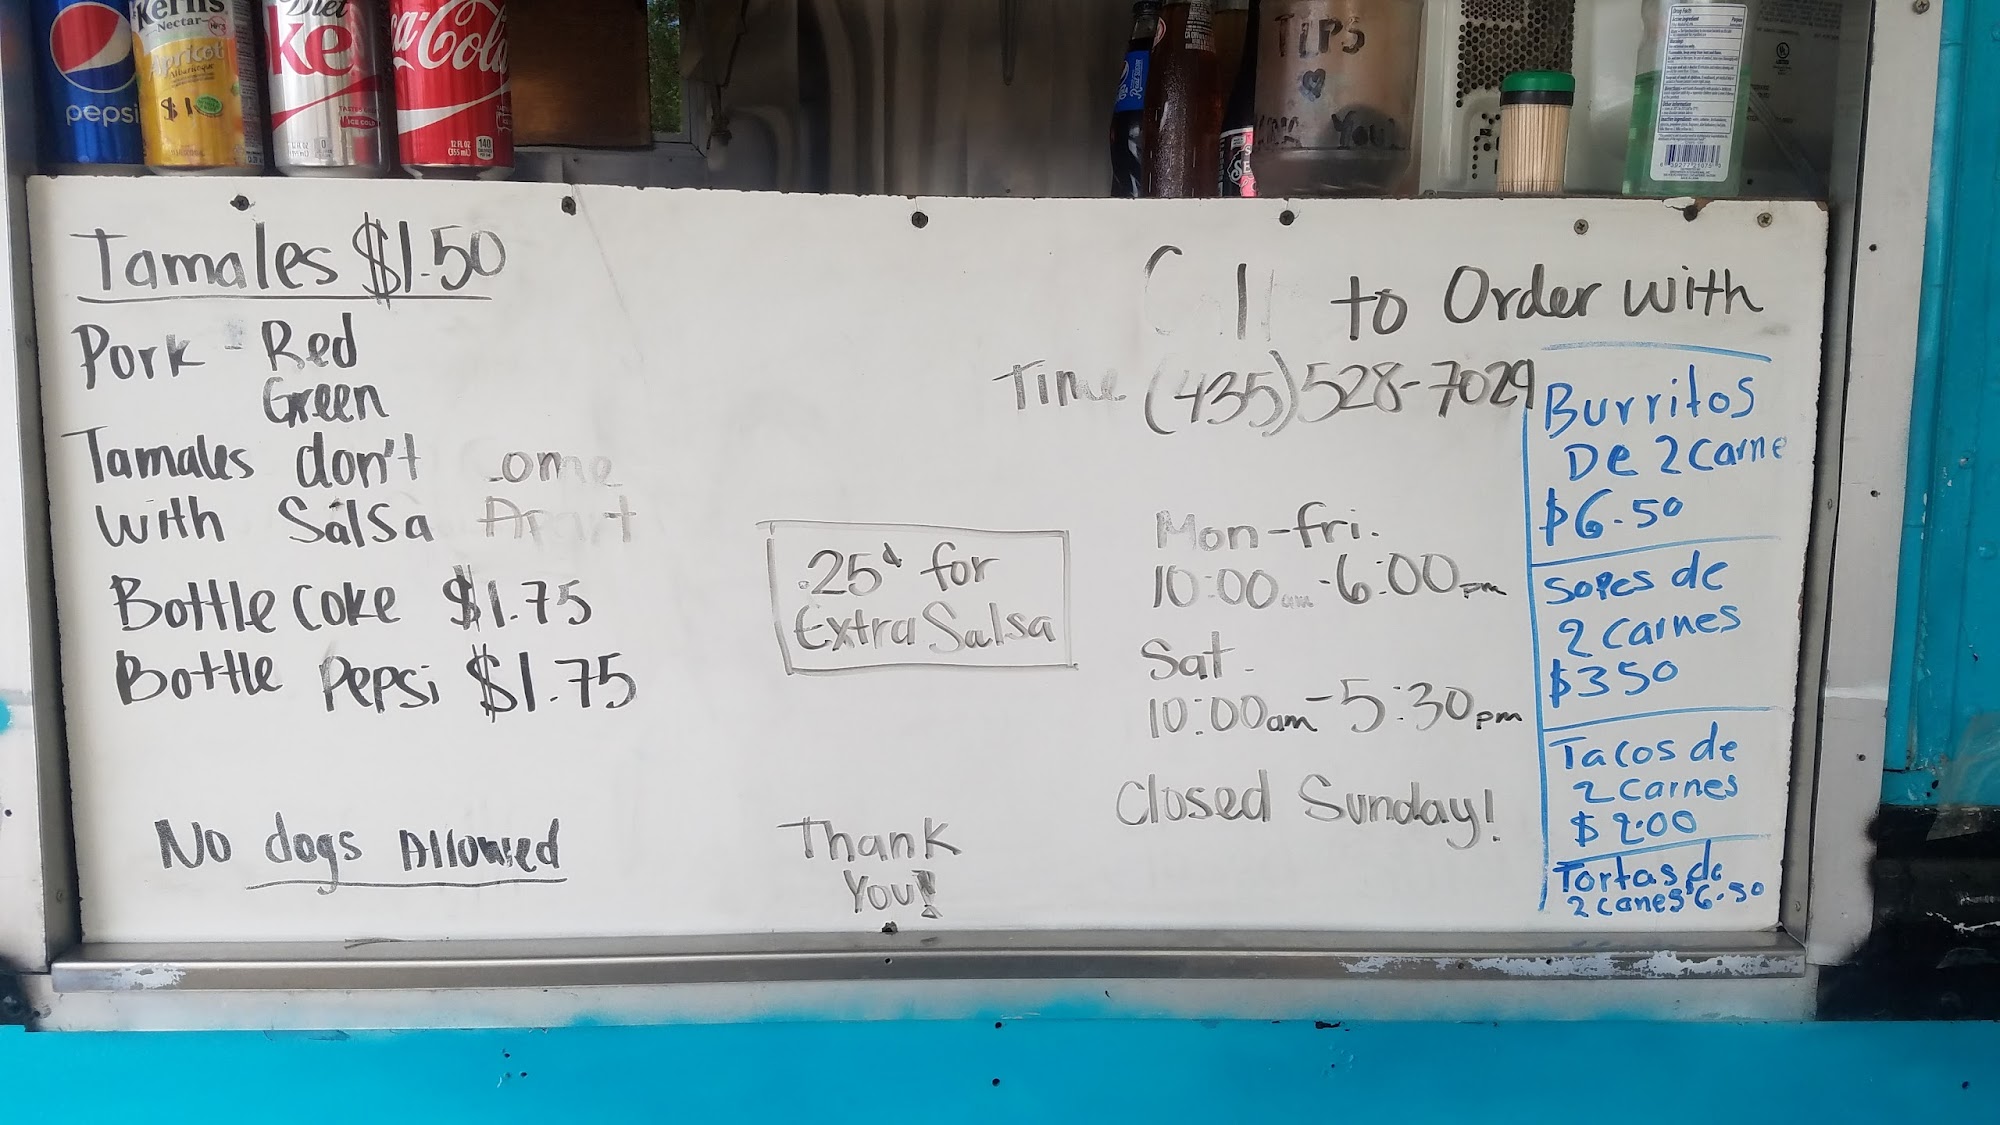 pepsi
Kerns
Nectar
Apricot
Albaricoque
$1
Diet
ke
TASTES
ICE COLD
ca-Cola
12 FL OZ
(355 mL)
140
TIPS
You!
Drug Facts
Tamales $1.50
Pork - Red
Green
Tamales don't come
with Salsa Apart
Bottle coke $1.75
Bottle Pepsi $1.75
No dogs Allowed
.25¢ for
Extra Salsa
Thank
You!
Call to Order with
Time (435)528-7029
Mon-Fri.
10:00am-6:00pm
Sat.
10:00am-5:30pm
Closed Sunday!
Burritos
De 2 carne
$6.50
Sopes de
2 carnes
$3 50
Tacos de
2 carnes
$2.00
Tortas de
2 canes $6.50